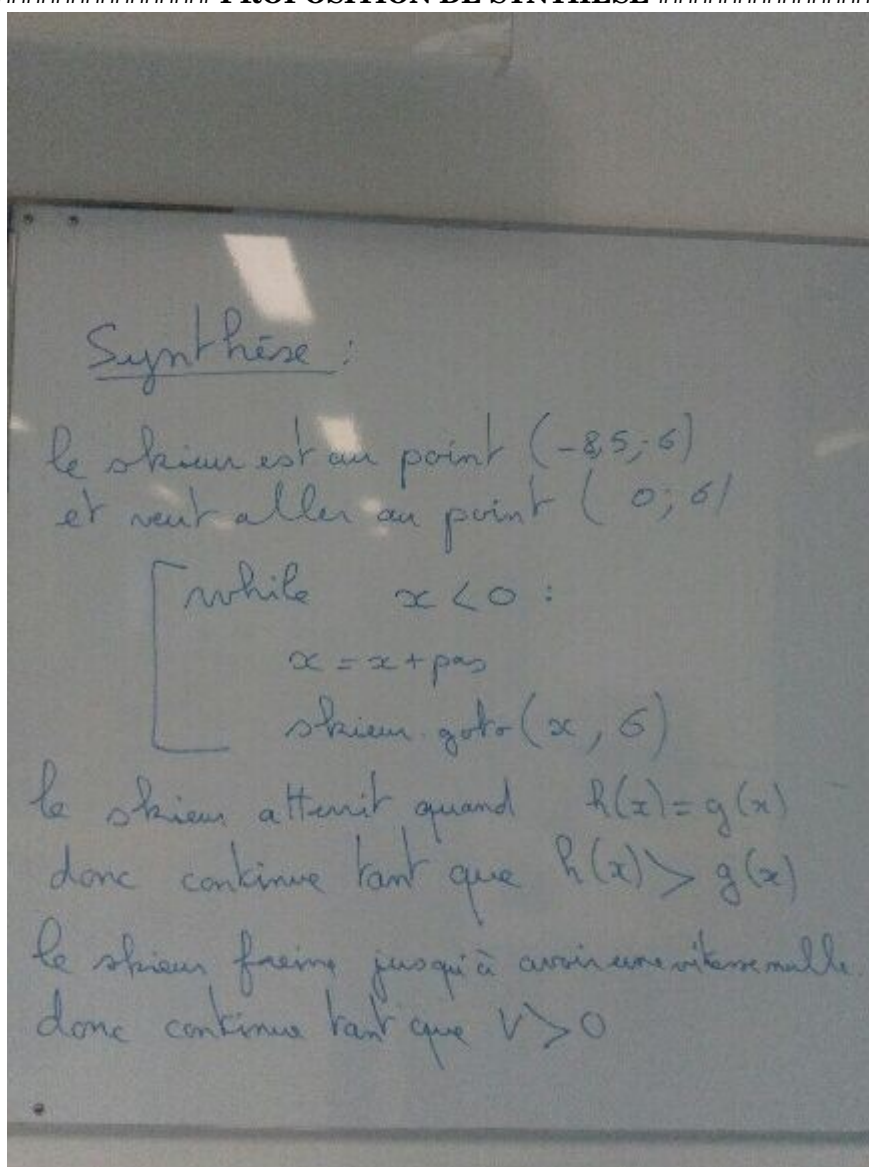 PROPOSITION DE SYNTHÈSE
Synthèse :
le skieur est au point (-8,5;6)
et veut aller au point (0;6)
while x<0 :
x=x+pas
skieur.goto(x,6)
le skieur atterrit quand h(x)=g(x)
donc continue tant que h(x)>g(x)
le skieur freine jusqu'à avoir une vitesse nulle.
donc continue tant que V>0